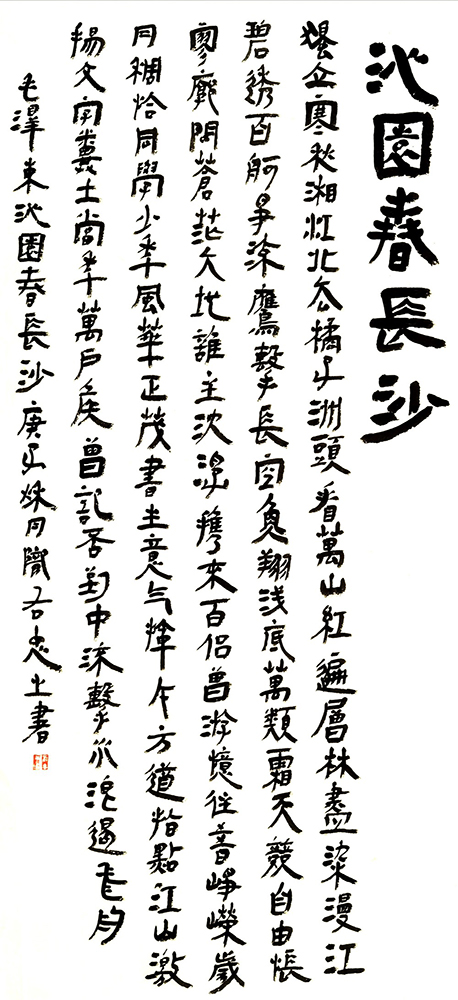 沁園春長沙
獨立寒秋湘江北去橘子洲頭看萬山紅遍層林盡染漫江
碧透百舸爭流鷹擊長空魚翔浅底萬類霜天競自由悵
寥廓問蒼茫大地誰主沈浮攜來百侶曾游憶往昔崢嶸歲
月稠恰同學少年風華正茂書生意气揮斥方遒指點江山激
揚文字糞土當年萬戶侯曾記否到中流擊水浪遏飛舟
毛澤東沁園春長沙庚子秋月右忠之書